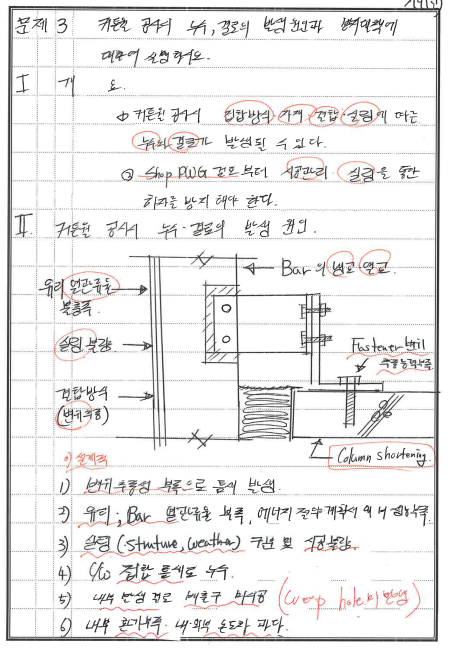 문제 3 커튼월 공사시 누수, 결로의 발생 원인과 방지대책에
대하여 설명하시오.
I 개 요.
① 커튼월 공사시 접합방식·가격·접합·실링에 따른
누수와 결로가 발생될 수 있다.
② Shop DWG 검토부터 시공관리·실링을 통한
하자를 방지해야 한다.
II. 커튼월 공사시 누수·결로의 발생 원인.
Bar의 냉교 열교
유리 열관류율
불량.
Fastener
실링 불량
접합방식
(변위추종)
Column shortening.
1) 변위추종성 부족으로 틈새 발생.
2) 유리, Bar 열관류율 부족, 에너지 절약계획서
3) 실링 (structure, weather) 구멍 및 시공불량.
4) C/W 접합 틈새로 누수.
5) 내부 발생 결로 배출구 미시공 (weep hole 미반영)
6) 내부 환기부족·내·외부 온도차 과다.